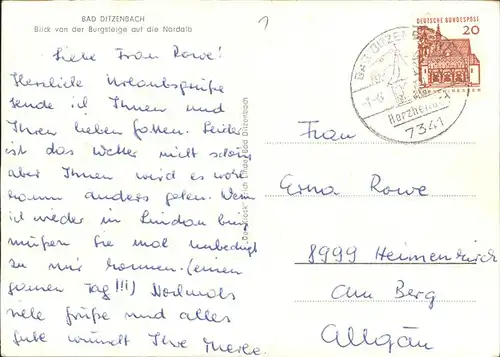 BAD DITZENBACH
Blick von der Burgsteige auf die Nordalb
Liebe Frau Rowe!
Herzliche Urlaubsgrüße
sende ich Ihnen und
Ihrem lieben Gatten. Leider
ist das Wetter nicht schön,
aber Ihnen wird es wohl
kaum anders gehen. Wenn
ich wieder in Lindau bin,
müßen Sie mal unbedingt
zu mir kommen. (einen
ganzen Tag!!!) Nochmals
viele Grüße und alles
gute wünscht Ihre
Bad Ditzenbach
DEUTSCHE BUNDESPOST
20
BAD DITZENBACH
7341
Frau
Erna Rowe
8999 Heimenkirch
am Berg
Allgäu